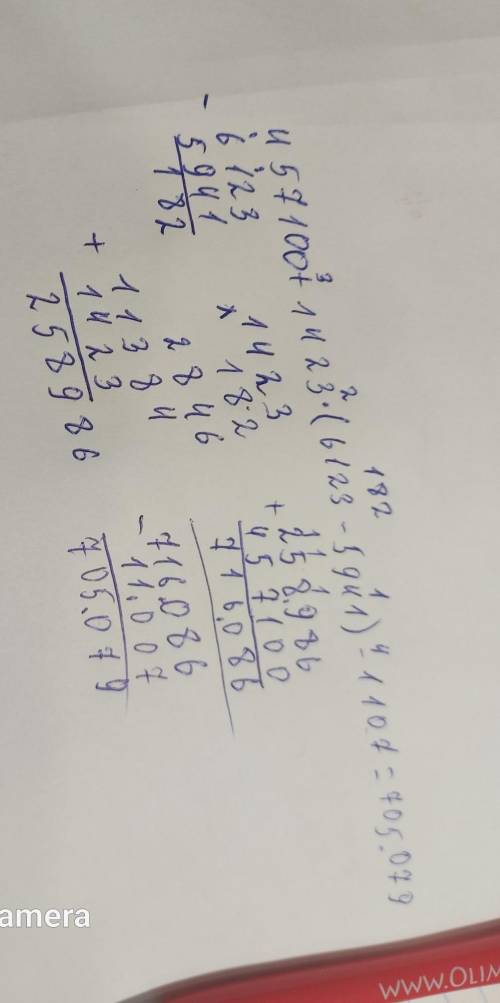 457100 + 1423 · (6123 - 5941) - 1107 = 705.079
3 2 182 1 4
-
6123
5941
182
1423
× 182
2846
11384
+ 1423
258986
1 1 1
258.986
+ 457100
716.086
716.086
- 11.007
705.079
amera
www.OLIM